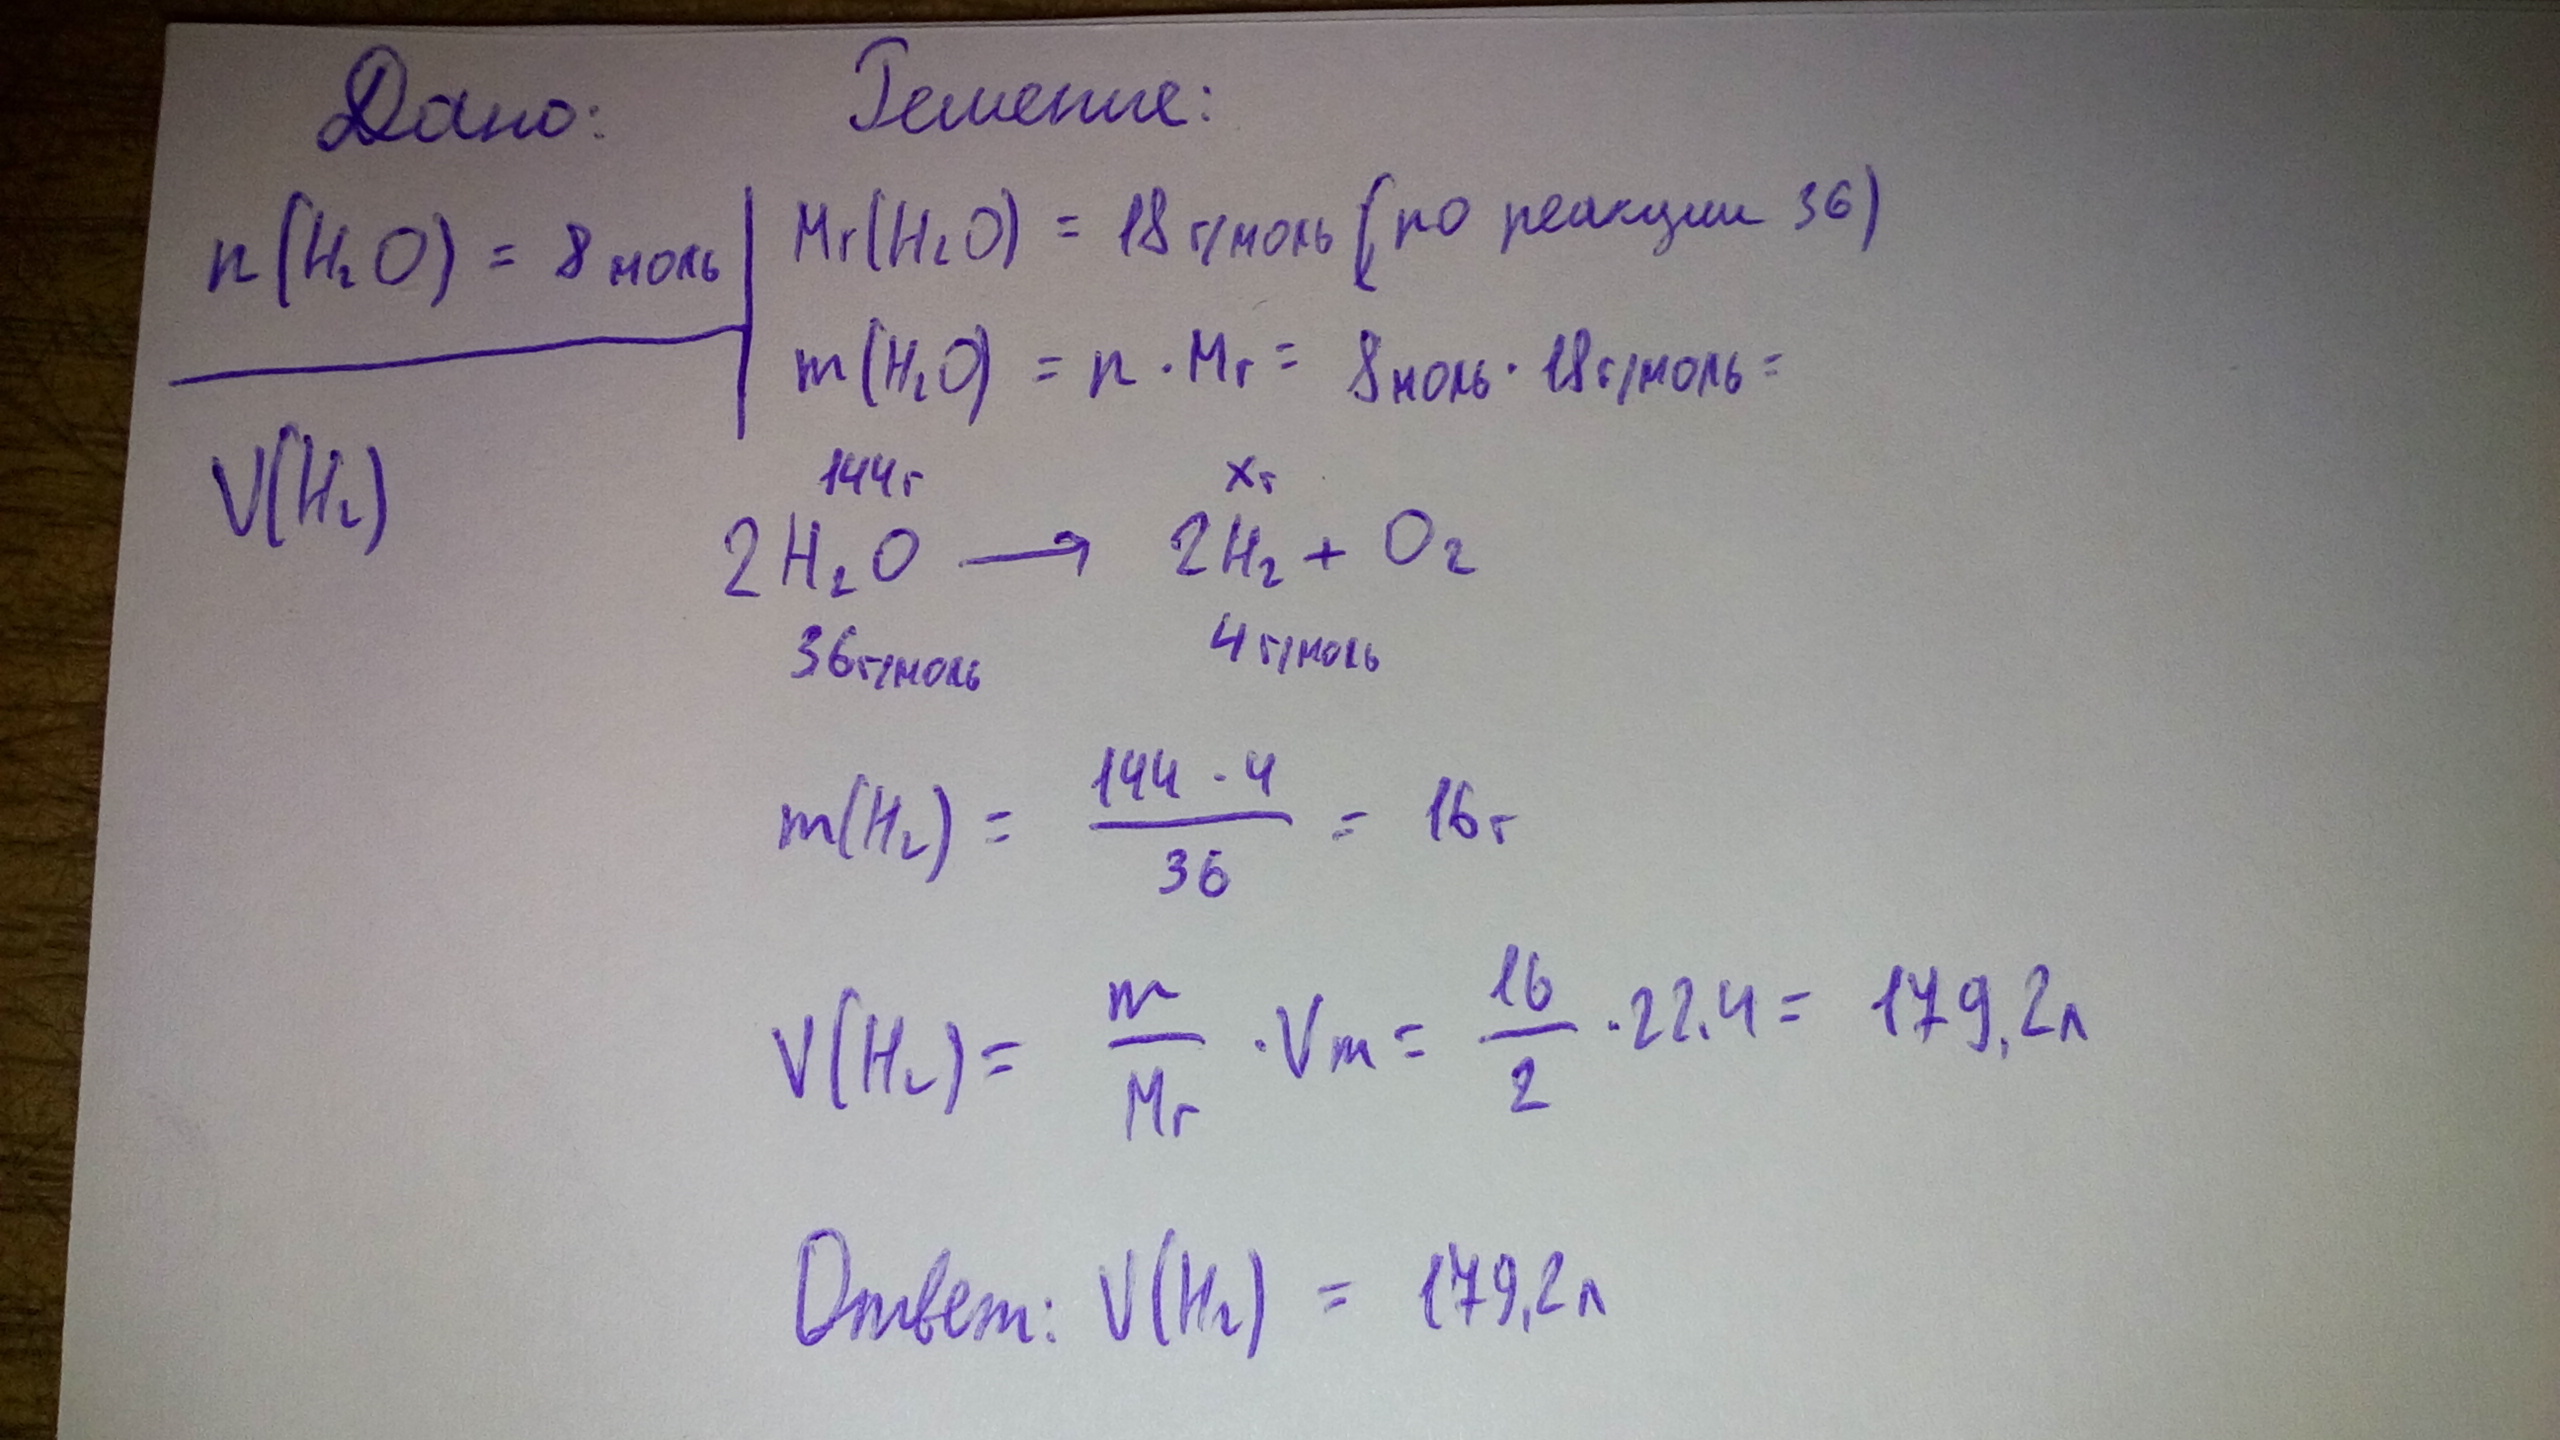 Дано: Решение:
n(H₂O) = 8 моль
Mr(H₂O) = 18 г/моль (по реакции 36)
m(H₂O) = n · Mr = 8 моль · 18 г/моль =
V(H₂)
144г xг
2H₂O → 2H₂ + O₂
36г/моль 4г/моль
m(H₂) = 144 · 4 / 36 = 16г
V(H₂) = m / Mr · Vm = 16 / 2 · 22.4 = 179,2л
Ответ: V(H₂) = 179,2л